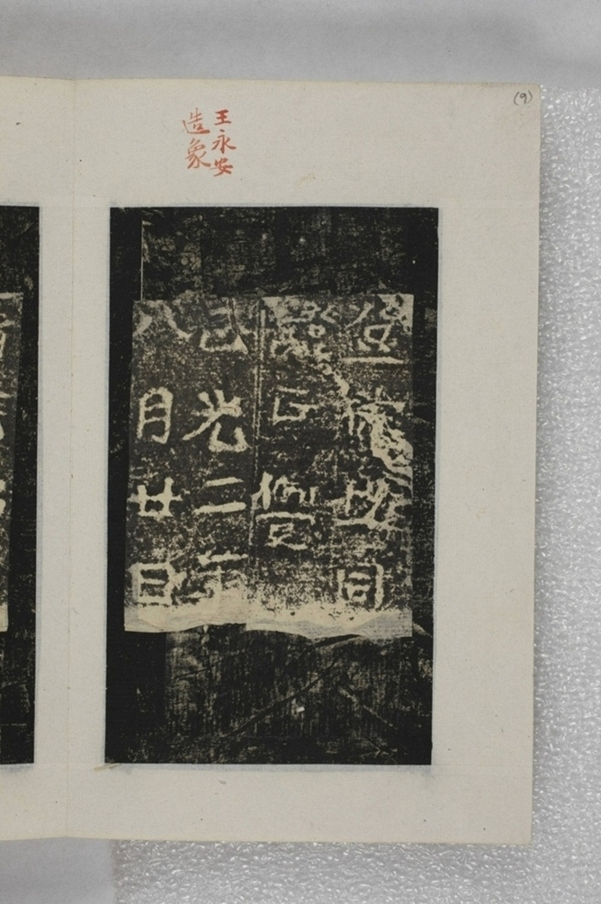 (9)
王永安
造象
同
正覺
正光二年
八月廿日